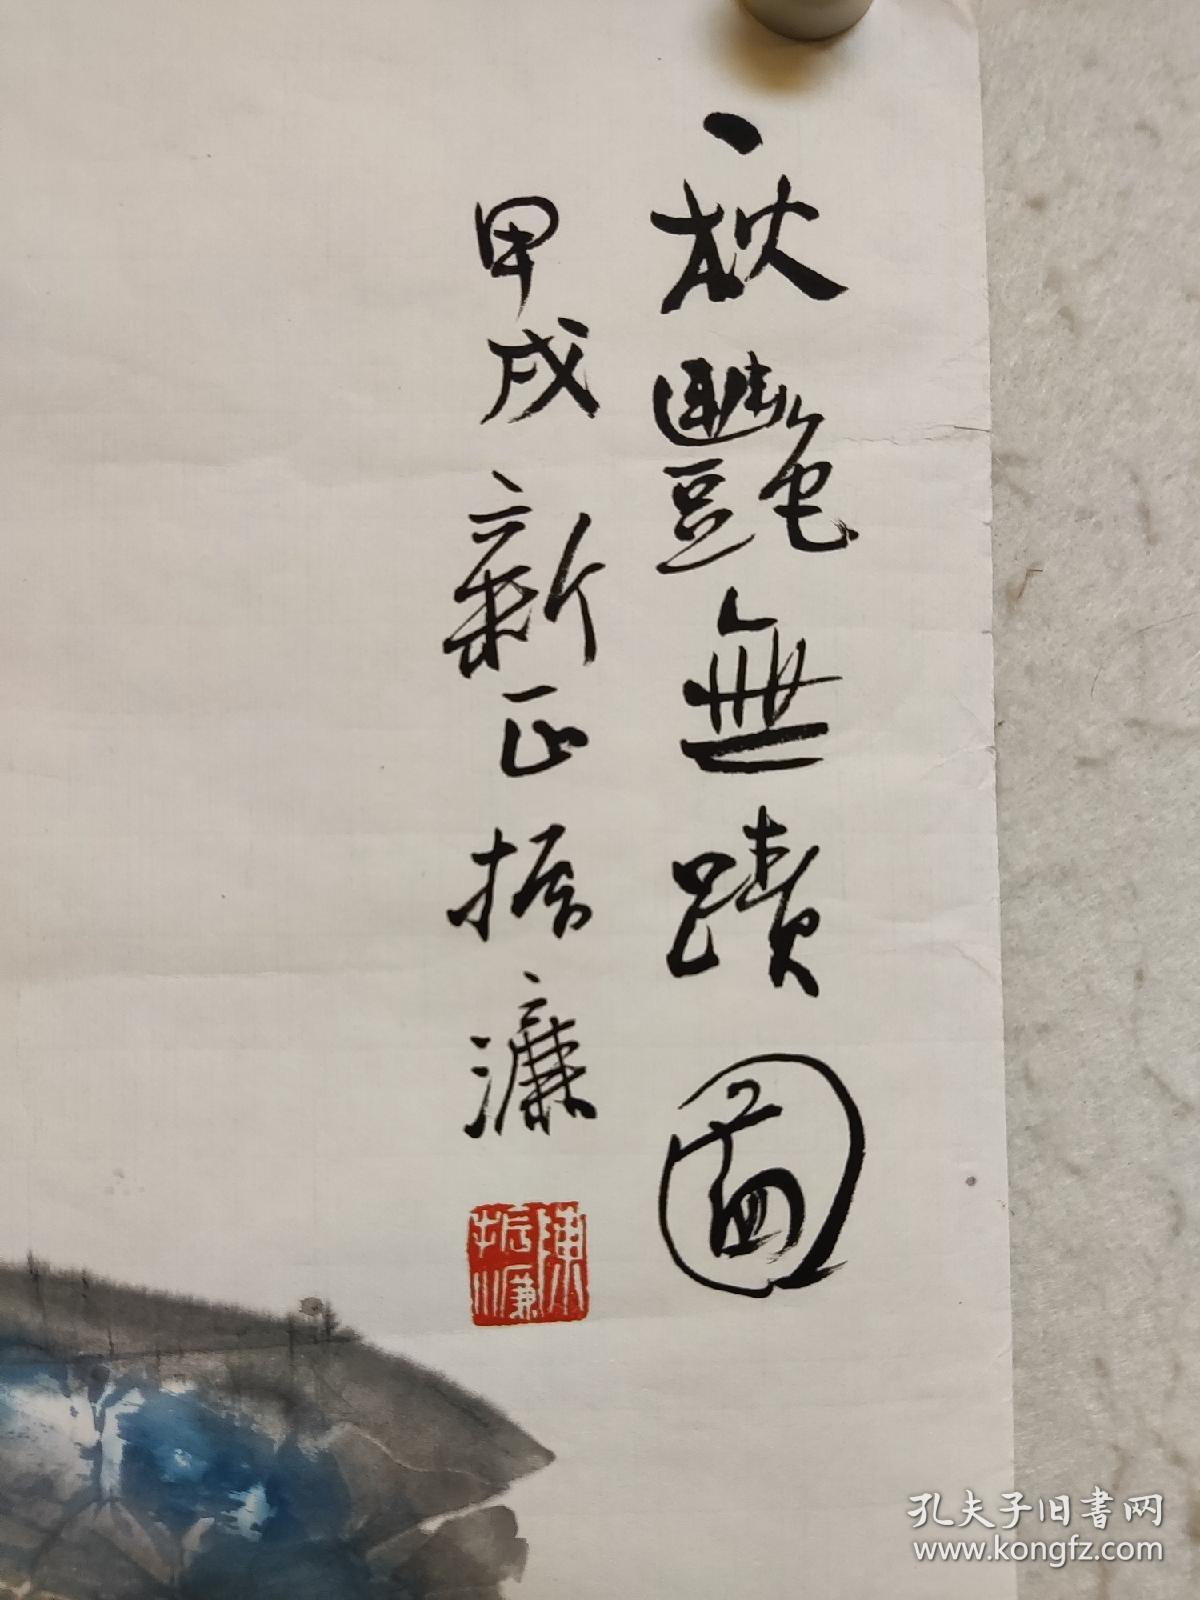 秋豔無蹟圖
甲戌新正振濂
陳振濂
孔夫子旧書网
www.kongfz.com